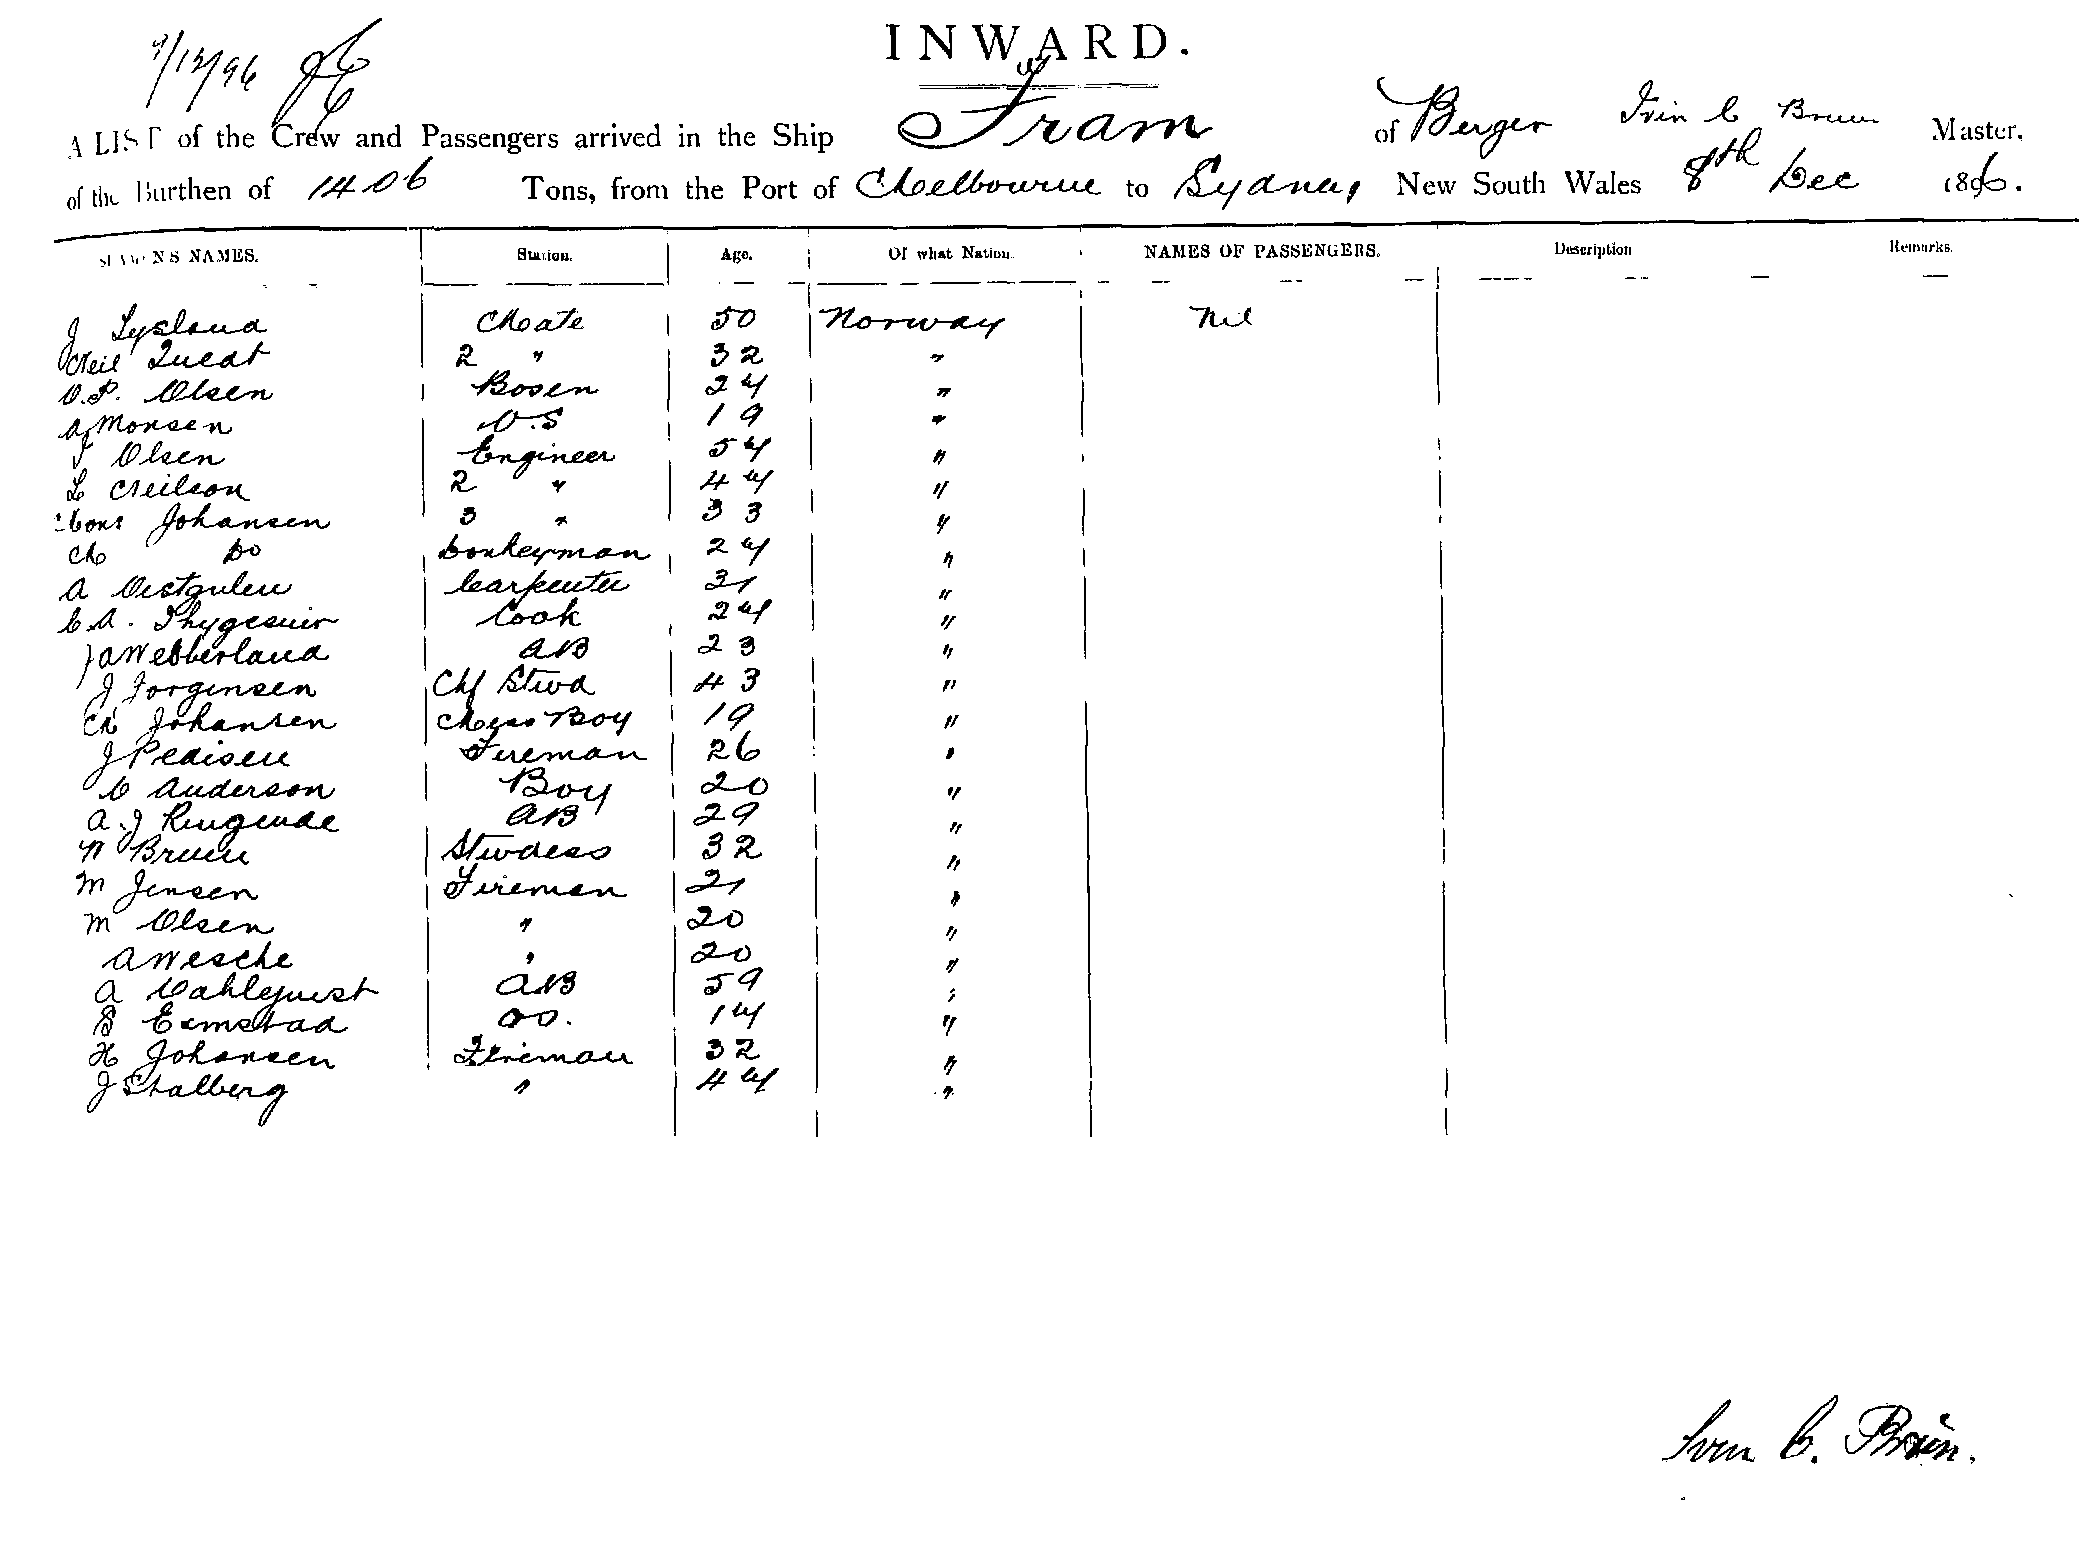 INWARD.
9/12/96
A LIST of the Crew and Passengers arrived in the Ship Fram of Bergen Sven C Bruun Master.
of the Burthen of 1406 Tons, from the Port of Melbourne to Sydney, New South Wales 8th Dec 1896.
SEAMENS NAMES. Station. Age. Of what Nation. NAMES OF PASSENGERS. Description Remarks.
J Lysland Mate 50 Norway Nil
Neil Quedt 2 " 32 "
O.P. Olsen Bosen 24 "
A Monsen O.S 19 "
J Olsen Engineer 54 "
L Neilson 2 " 44 "
Johansen 3 " 33 "
M Do Donkeyman 24 "
A Carpenter 31 "
C.A. Thygesuir Cook 24 "
J A Webberland AB 23 "
J Jorgensen Chf Stwd 43 "
Ch Johansen Mess Boy 19 "
J Pedisen Fireman 26 "
C Anderson Boy 20 "
A.J Ringende AB 29 "
N Bruun Stwdess 32 "
M Jensen Fireman 21 "
M Olsen " 20 "
A Wesche " 20 "
A Dahlquist AB 59 "
Exmstad OS. 14 "
H Johansen Fireman 32 "
J Stalberg " 44 "
Sven C. Bruun.